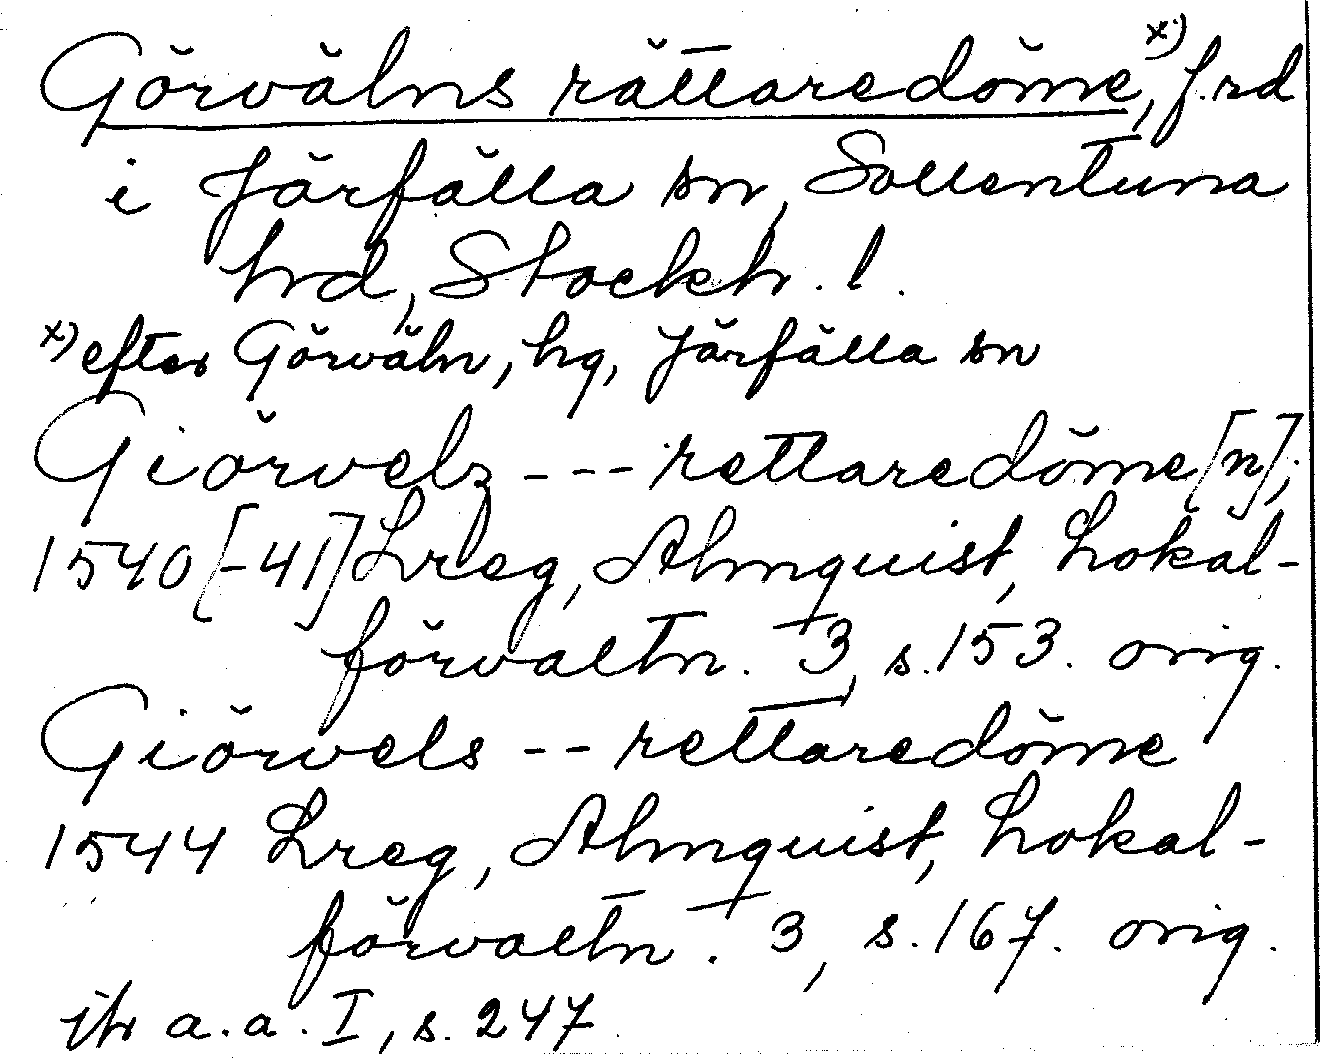 Görvälns rättaredöme,x) f.rd
i Järfälla sn, Sollentuna
hrd, Stockh. l.
x) efter Görväln, hg, Järfälla sn
Giörvelz --- rettaredöme[n];
1540[-41] Lreg, Almquist, Lokal-
förvaltn. 3, s. 153. orig.
Giörvels -- rettaredöme
1544 Lreg, Almquist, Lokal-
förvaltn. 3, s. 167. orig.
jfr a.a. I, s. 247